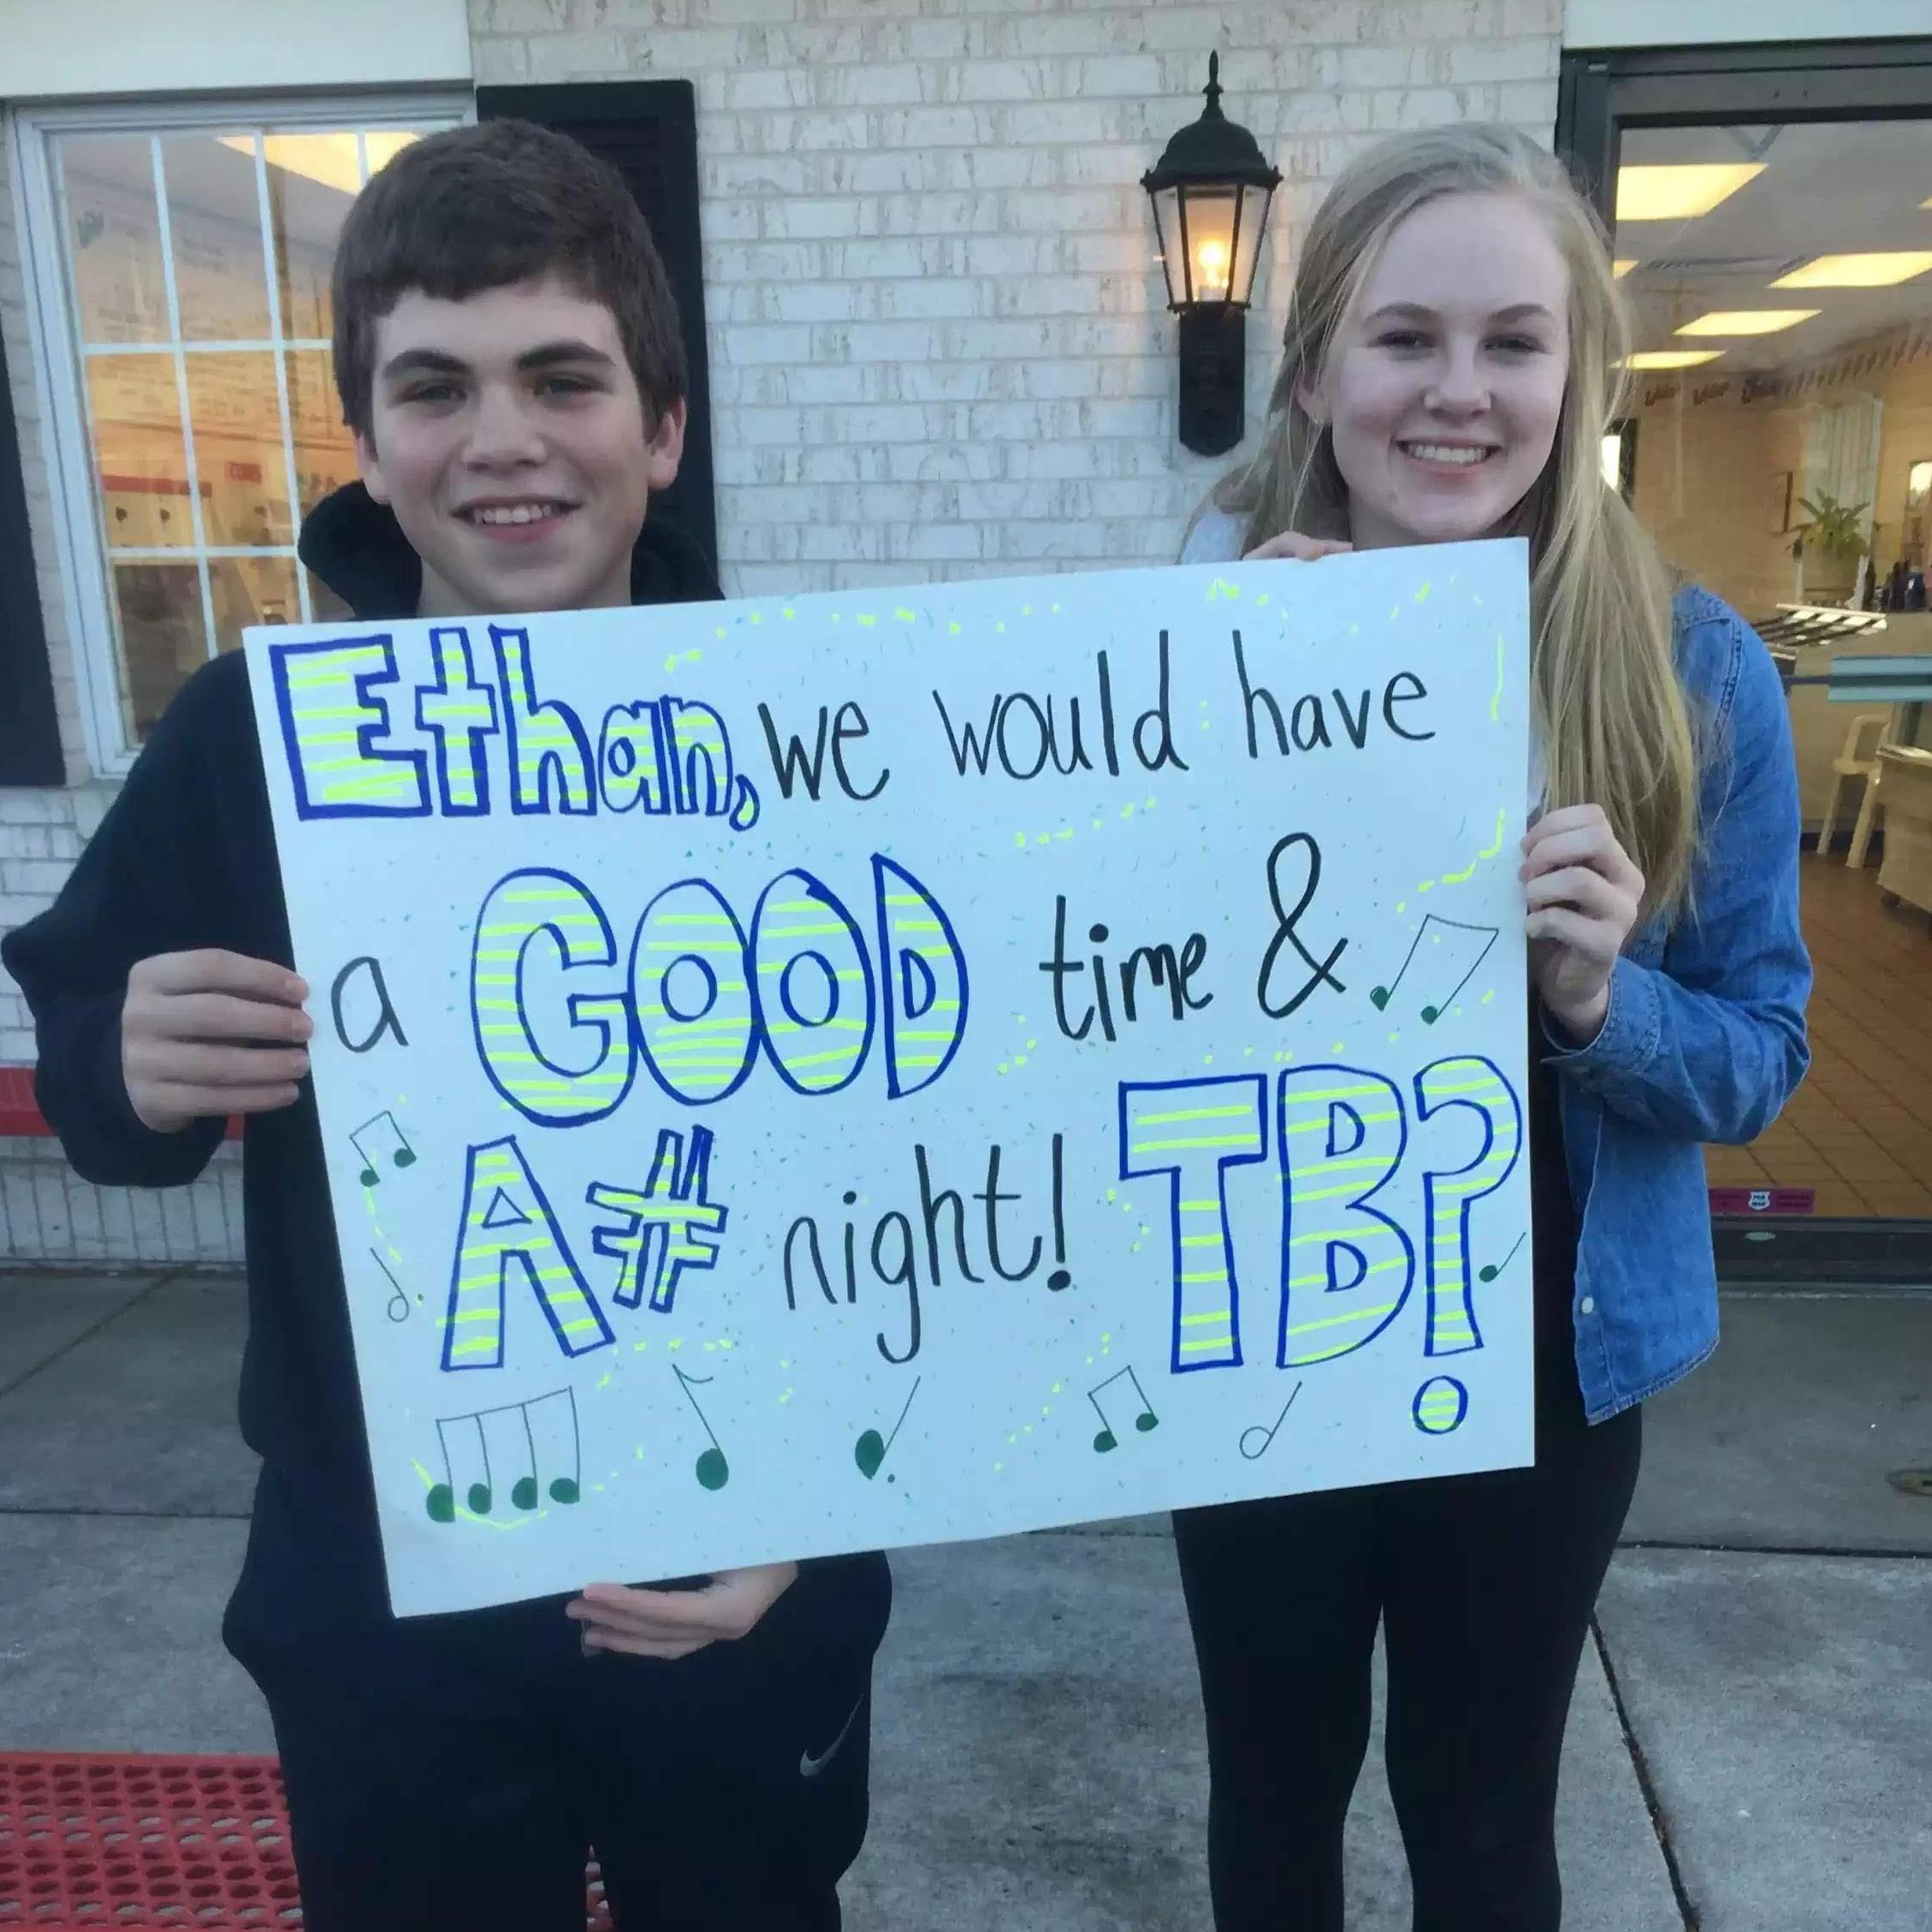 Ethan, we would have
a GOOD time &
A# night! TB?